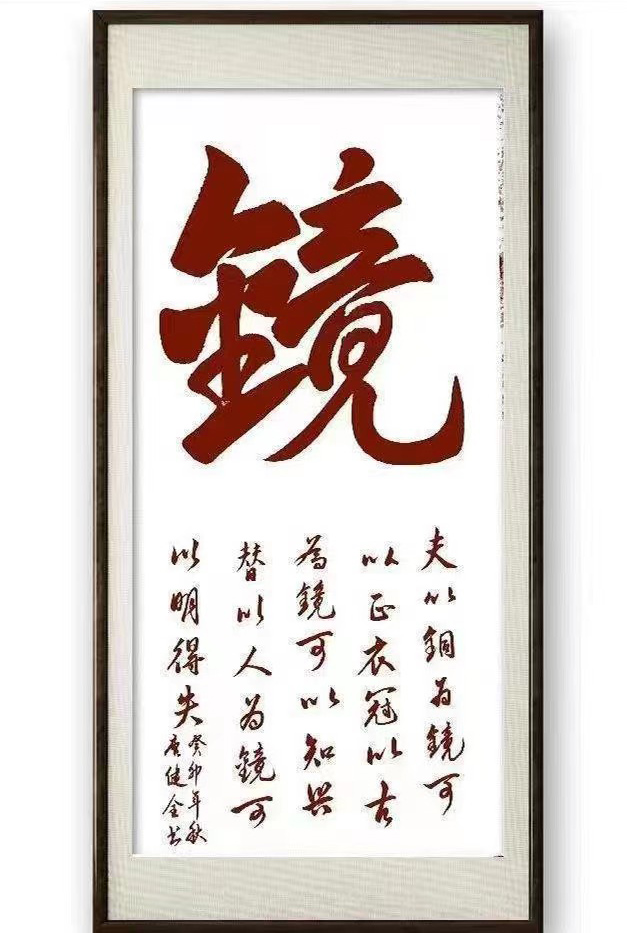 鏡
夫以銅為鏡可
以正衣冠以古
為鏡可以知興
替以人為鏡可
以明得失
癸卯年秋
唐健全书